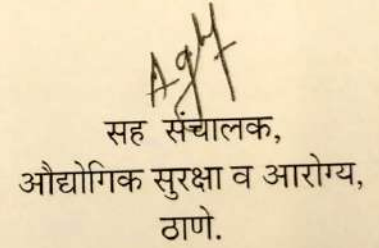 सह संचालक,
औद्योगिक सुरक्षा व आरोग्य,
ठाणे.